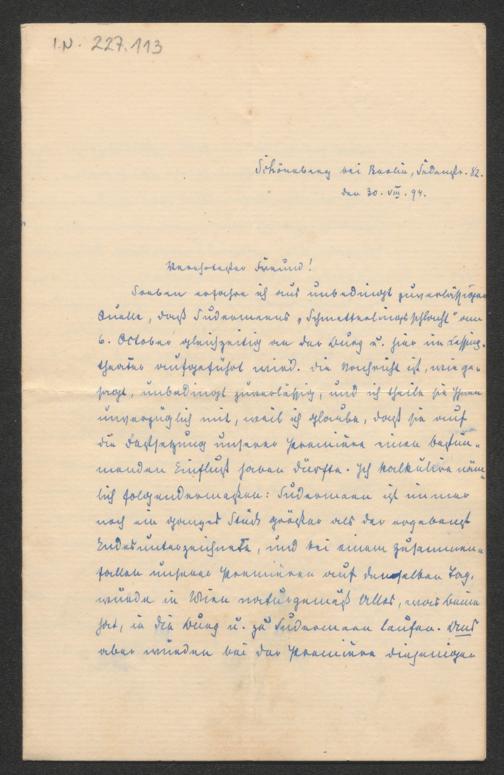 I.N. 227.113
Schöneberg bei Berlin, Sedanstr. 82.
den 30. VIII. 94.
Verehrtester Freund!
Soeben erfahre ich aus unbedingt zuverlässiger
Quelle, daß Sudermanns „Schmetterlingsschlacht“ am
6. October gleichzeitig an der Burg u. hier im Lessing-
theater aufgeführt wird. Die Nachricht ist, wie ge-
sagt, unbedingt zuverlässig, und ich theile sie Ihnen
unverzüglich mit, weil ich glaube, daß sie auf
die Festsetzung unserer Première einen bestim-
menden Einfluß haben dürfte. Ich kalkulire näm-
lich folgendermaßen: Sudermann ist immer
noch ein ganzes Stück größer als der ergebenst
Endesunterzeichnete, und bei einem Zusammen-
fallen unserer Premièren auf denselben Tag,
würde in Wien naturgemäß Alles, was Beine
hat, in die Burg u. zu Sudermann laufen. Uns
aber würden bei der Première diejenigen